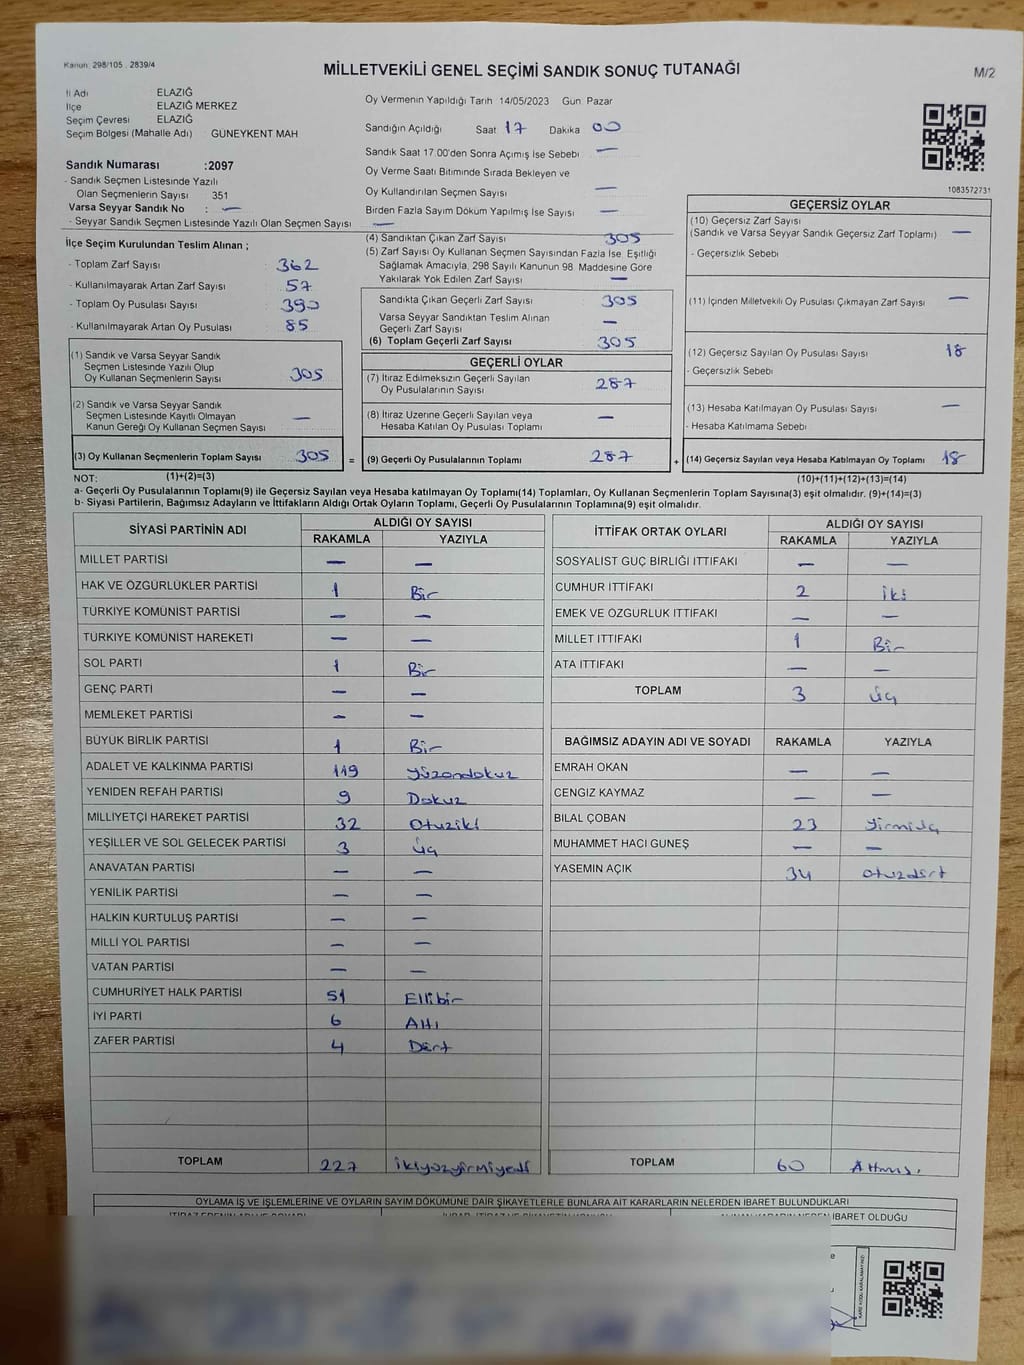 Kanun: 298/105 , 2839/4
MİLLETVEKİLİ GENEL SEÇİMİ SANDIK SONUÇ TUTANAĞI
M/2
İl Adı ELAZIĞ
İlçe ELAZIĞ MERKEZ
Seçim Çevresi ELAZIĞ
Seçim Bölgesi (Mahalle Adı) GÜNEYKENT MAH
Sandık Numarası :2097
- Sandık Seçmen Listesinde Yazılı
Olan Seçmenlerin Sayısı 351
Varsa Seyyar Sandık No : —
- Seyyar Sandık Seçmen Listesinde Yazılı Olan Seçmen Sayısı —
Oy Vermenin Yapıldığı Tarih 14/05/2023 Gün: Pazar
Sandığın Açıldığı Saat 17 Dakika 00
Sandık Saat 17.00'den Sonra Açımış İse Sebebi —
Oy Verme Saati Bitiminde Sırada Bekleyen ve
Oy Kullandırılan Seçmen Sayısı —
Birden Fazla Sayım Döküm Yapılmış İse Sayısı —
1083572731
İlçe Seçim Kurulundan Teslim Alınan ;
- Toplam Zarf Sayısı 362
- Kullanılmayarak Artan Zarf Sayısı 57
- Toplam Oy Pusulası Sayısı 390
- Kullanılmayarak Artan Oy Pusulası 85
(1) Sandık ve Varsa Seyyar Sandık
Seçmen Listesinde Yazılı Olup
Oy Kullanan Seçmenlerin Sayısı 305
(2) Sandık ve Varsa Seyyar Sandık
Seçmen Listesinde Kayıtlı Olmayan
Kanun Gereği Oy Kullanan Seçmen Sayısı —
(3) Oy Kullanan Seçmenlerin Toplam Sayısı 305 =
(4) Sandıktan Çıkan Zarf Sayısı 305
(5) Zarf Sayısı Oy Kullanan Seçmen Sayısından Fazla İse, Eşitliği
Sağlamak Amacıyla, 298 Sayılı Kanunun 98. Maddesine Göre
Yakılarak Yok Edilen Zarf Sayısı —
Sandıkta Çıkan Geçerli Zarf Sayısı 305
Varsa Seyyar Sandıktan Teslim Alınan
Geçerli Zarf Sayısı —
(6) Toplam Geçerli Zarf Sayısı 305
GEÇERLİ OYLAR
(7) İtiraz Edilmeksizin Geçerli Sayılan
Oy Pusulalarının Sayısı 287
(8) İtiraz Üzerine Geçerli Sayılan veya
Hesaba Katılan Oy Pusulası Toplamı —
(9) Geçerli Oy Pusulalarının Toplamı 287 +
GEÇERSİZ OYLAR
(10) Geçersiz Zarf Sayısı
(Sandık ve Varsa Seyyar Sandık Geçersiz Zarf Toplamı) —
- Geçersizlik Sebebi
(11) İçinden Milletvekili Oy Pusulası Çıkmayan Zarf Sayısı —
(12) Geçersiz Sayılan Oy Pusulası Sayısı 18
- Geçersizlik Sebebi
(13) Hesaba Katılmayan Oy Pusulası Sayısı —
- Hesaba Katılmama Sebebi
(14) Geçersiz Sayılan veya Hesaba Katılmayan Oy Toplamı 18
NOT: (1)+(2)=(3) (10)+(11)+(12)+(13)=(14)
a- Geçerli Oy Pusulalarının Toplamı(9) ile Geçersiz Sayılan veya Hesaba katılmayan Oy Toplamı(14) Toplamları, Oy Kullanan Seçmenlerin Toplam Sayısına(3) eşit olmalıdır. (9)+(14)=(3)
b- Siyasi Partilerin, Bağımsız Adayların ve İttifakların Aldığı Ortak Oyların Toplamı, Geçerli Oy Pusulalarının Toplamına(9) eşit olmalıdır.
SİYASİ PARTİNİN ADI ALDIĞI OY SAYISI
RAKAMLA YAZIYLA
MİLLET PARTİSİ — —
HAK VE ÖZGÜRLÜKLER PARTİSİ 1 Bir
TÜRKİYE KOMÜNİST PARTİSİ — —
TÜRKİYE KOMÜNİST HAREKETİ — —
SOL PARTİ 1 Bir
GENÇ PARTİ — —
MEMLEKET PARTİSİ — —
BÜYÜK BİRLİK PARTİSİ 1 Bir
ADALET VE KALKINMA PARTİSİ 119 Yüzondokuz
YENİDEN REFAH PARTİSİ 9 Dokuz
MİLLİYETÇİ HAREKET PARTİSİ 32 Otuziki
YEŞİLLER VE SOL GELECEK PARTİSİ 3 Üç
ANAVATAN PARTİSİ — —
YENİLİK PARTİSİ — —
HALKIN KURTULUŞ PARTİSİ — —
MİLLİ YOL PARTİSİ — —
VATAN PARTİSİ — —
CUMHURİYET HALK PARTİSİ 51 Ellibir
İYİ PARTİ 6 Altı
ZAFER PARTİSİ 4 Dört
TOPLAM 227 ikiyüzyirmiyedi
İTTİFAK ORTAK OYLARI ALDIĞI OY SAYISI
RAKAMLA YAZIYLA
SOSYALİST GÜÇ BİRLİĞİ İTTİFAKI — —
CUMHUR İTTİFAKI 2 iki
EMEK VE ÖZGÜRLÜK İTTİFAKI — —
MİLLET İTTİFAKI 1 Bir
ATA İTTİFAKI — —
TOPLAM 3 Üç
BAĞIMSIZ ADAYIN ADI VE SOYADI RAKAMLA YAZIYLA
EMRAH OKAN — —
CENGİZ KAYMAZ — —
BİLAL ÇOBAN 23 Yirmiüç
MUHAMMET HACI GÜNEŞ — —
YASEMİN AÇIK 34 otuzdört
TOPLAM 60 Altmış
OYLAMA İŞ VE İŞLEMLERİNE VE OYLARIN SAYIM DÖKÜMÜNE DAİR ŞİKAYETLERLE BUNLARA AİT KARARLARIN NELERDEN İBARET BULUNDUKLARI
İBARET OLDUĞU